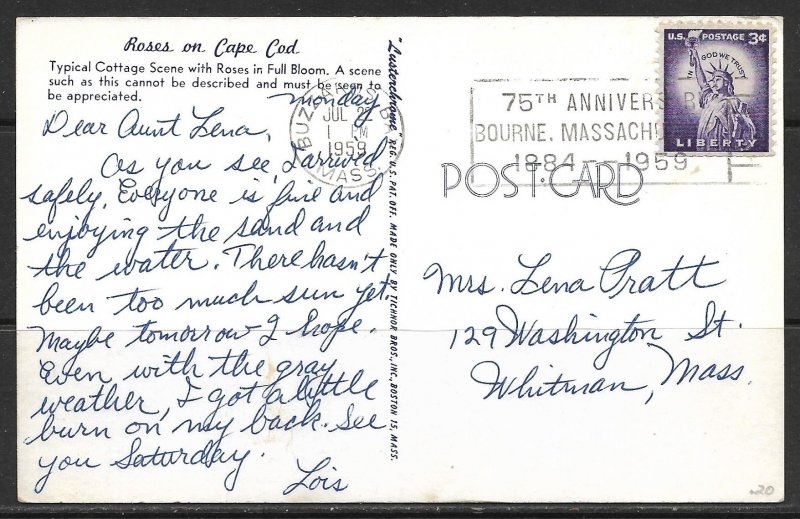 Roses on Cape Cod
Typical Cottage Scene with Roses in Full Bloom. A scene
such as this cannot be described and must be seen to
be appreciated.
Monday
Dear Aunt Lena,
As you see, I arrived
safely. Everyone is fine and
enjoying the sand and
the water. There hasn't
been too much sun yet.
Maybe tomorrow I hope.
Even with the gray
weather, I got a little
burn on my back. See
you Saturday.
Lois
"Lusterchrome" REG. U.S. PAT. OFF. MADE ONLY BY TICHNOR BROS., INC., BOSTON 15, MASS.
JUL
1 PM
1959
MASS.
75TH ANNIVERS
BOURNE, MASSACH
1884 - 1959
U.S. POSTAGE 3¢
IN GOD WE TRUST
LIBERTY
POST CARD
Mrs. Lena Pratt
129 Washington St.
Whitman, Mass.
.20